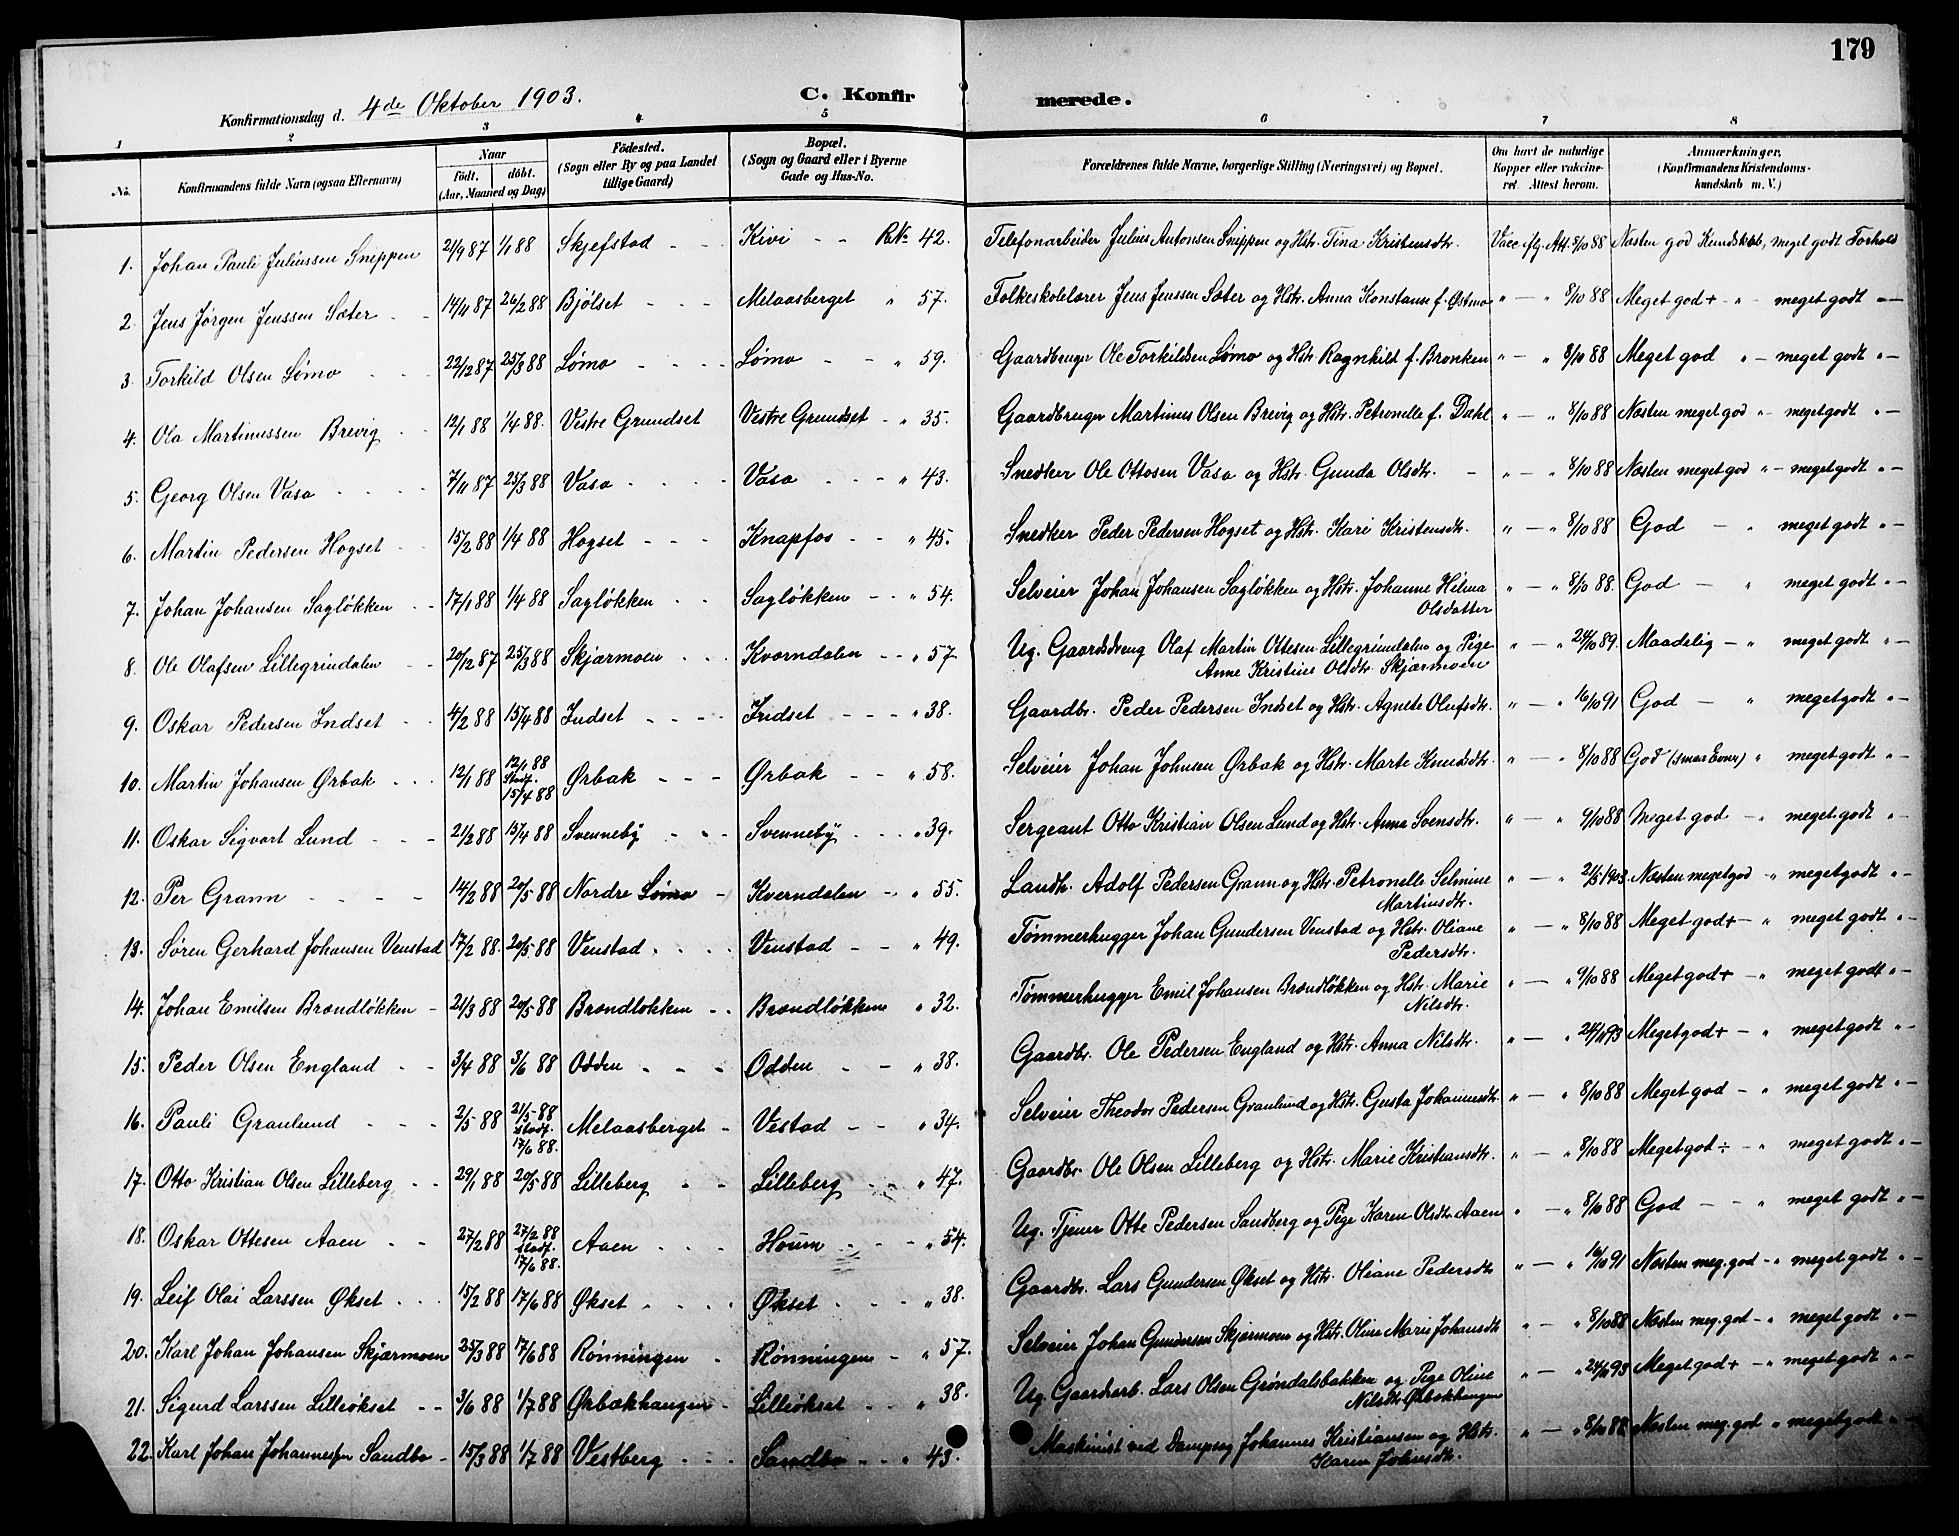 179
Konfirmationsdag d. 4de Oktober 1903. C. Konfirmerede.
1 2 3 4 5 6 7 8
No. Konfirmandens fulde Navn (ogsaa Efternavn) Naar født. døbt. (Aar, Maaned og Dag) Fødested. (Sogn eller By og paa Landet tillige Gaard) Bopæl. (Sogn og Gaard eller i Byerne Gade og Hus-No. Forældrenes fulde Navne, borgerlige Stilling (Næringsvei) og Bopæl. Om havt de naturlige Kopper eller vakcineret. Attest herom. Anmærkninger, (Konfirmandens Kristendomskundskab m. V.)
1. Johan Pauli Juliussen Snippen 21/9 87 1/1 88 Skjefstad - - Kivi - - RNo 42. Telefonarbeider Julius Antonsen Snippen og Hstr. Tina Kristensdtr. Vacc iflg. Att. 8/10 88 Næsten god Kundskab, meget godt Forhold
2. Jens Jørgen Jenssen Sæter - - 14/11 87 26/2 88 Bjølset - - - Melaasberget " 57. Folkeskolelærer Jens Jenssen Sæter og Hstr. Anna Konstanse f. Østmo " — " 8/10 88 Meget god + " - meget godt " -
3. Torkild Olsen Lømo - - - 22/12 87 25/3 88 Lømo - - - - Lømo - - " 59. Gaardbruger Ole Torkildsen Lømo og Hstr. Ragnhild f. Bronken " — " 8/10 88 Meget god " - meget godt " -
4. Ola Martinussen Brevig - - 12/1 88 1/4 88. Vestre Grundset Vestre Grundset - " 35. Gaardbruger Martinus Olsen Brevig og Hstr. Petronelle f. Dahl " — " 8/10 88 Næsten meget god " - meget godt " -
5. Georg Olsen Vasa - - - - 7/11 87 25/3 88 Vasa - - - - Vasa - - - " 43. Snedker Ole Ottosen Vasa og Hstr. Gunda Olsdtr. - " — " 8/10 88 Næsten meget god " - meget godt " -
6. Martin Pedersen Hogset - - 15/2 88 1/4 88 Hogset - - - Knapfos - - " 45. Snedker Peder Pedersen Hogset og Hstr. Kari Kristensdtr. " — " 8/10 88 God — " meget godt " -
7. Johan Johansen Sagløkken - - 17/1 88 1/4 88 Sagløkken - - Sagløkken - - " 54. Selveier Johan Johansen Sagløkken og Hstr. Johanne Hilma Olsdatter " — " 8/10 88. God — " meget godt " -
8. Ole Olafsen Lillegrindalen - - 20/12 87 25/3 88 Skjærmoen - - Kværndalen - - " 57 Ug. Gaardsdreng Olaf Martin Ottesen Lillegrindalen og Pige Anne Kristine Olsdtr. Skjærmoen " — " 24/10 89. Maadelig — " meget godt " -
9. Oskar Pedersen Indset - - 4/2 88 15/4 88 Indset - - - - Indset - - - " 38. Gaardbr. Peder Pedersen Indset og Hstr. Agnete Olufsdtr. " — " 16/10 91 God — " meget godt " -
10. Martin Johansen Ørbak - - - 12/1 88 12/1 88 Stadf. 15/4 88 Ørbak - - - Ørbak - - " 58. Selveier Johan Johnsen Ørbak og Hstr. Marte Knudsdtr. " — " 8/10 88 God (smaa Evner) " meget godt " -
11. Oskar Sigvart Lund - - - 21/2 88 15/4 88 Svenneby - - - Svenneby - - - " 39. Sergeant Otto Kristian Olsen Lund og Hstr. Anna Svensdtr. " — " 9/10 88 Meget god — " meget godt " -
12. Per Grann - - - - 14/2 88 20/5 88 Nordre Lømo - Kverndalen - - " 55. Landh. Adolf Pedersen Grann og Hstr. Petronelle Selmine Martinsdtr. " — " 2/5 1903 Næsten meget god - " meget godt " -
13. Søren Gerhard Johansen Venstad 17/2 88. 20/5 88 Venstad - - - - Venstad - - " 49. Tømmerhugger Johan Gundersen Venstad og Hstr. Oliane Pedersdtr. " — " 8/10 88 Meget god + - " meget godt " -
14. Johan Emilsen Brændløkken - 21/3 88 20/5 88 Brændløkken - - Brændløkken " 32. Tømmerhugger Emil Johansen Brændløkken og Hstr. Marie Nilsdtr. " — " 9/10 88 Meget god + - " meget godt " -
15. Peder Olsen England - - 3/4 88 3/6 88 Odden - - - Odden - - " 38. Gaardbr. Ole Pedersen England og Hstr. Anna Nilsdtr. " — " 24/11 93 Meget god + - " meget godt " -
16. Pauli Granlund - - - 2/5 88 21/5 88 Stadf. 17/6 88. Melaasberget - Vestad - - " 34. Selveier Theodor Pedersen Granlund og Hstr. Gusta Johannesdtr. " — " 8/10 88 Meget god - " meget godt " -
17. Otto Kristian Olsen Lilleberg - - 29/1 88 20/5 88 Lilleberg - - Lilleberg - - " 47. Gaardbr. Ole Olsen Lilleberg og Hstr. Marie Kristiansdtr. " — " 8/10 88 Meget god ÷ - " meget godt " -
18. Oskar Ottesen Aaen - - 27/2 88 27/2 88 Stadf. 17/6 88. Aaen - - - Houm - - - " 54. Ug. Tjener Otte Pedersen Sandberg og Pige Karen Olsdtr. Aaen " — " 8/10 88 God — - " meget godt " -
19. Leif Olai Larssen Økset - - - 15/2 88 17/6 88 Økset - - - - Økset - - - " 38. Gaardbr. Lars Gundersen Økset og Hstr. Oliane Pedersdtr " — " 16/10 91 Næsten meg. god - " meget godt " -
20. Karl Johan Johansen Skjærmoen 25/3 88 17/6 88 Rønningen - Rønningen - " 57. Selveier Johan Gundersen Skjærmoen og Hstr. Oline Marie Johansdtr " — " 8/10 88 Næsten meg. god - " meget godt " -
21. Sigurd Larssen Lilleøkset - - 3/6 88 1/7 88 Ørbækhaugen - Lilleøkset - - " 38. Ug. Gaardarb. Lars Olsen Grøndalsbakken og Pige Oline Nilsdtr. Ørbækhaugen " — " 24/11 93 Meget god + - " meget godt " -
22. Karl Johan Johannessen Sandbo - 15/3 88 1/7 88 Vestberg - - - Sandbo - - " 43. Maskinist ved Dampsag Johannes Kristiansen og Hstr. Karen Johnsdtr. " — " 8/10 88 Næsten meg. god " meget godt " -